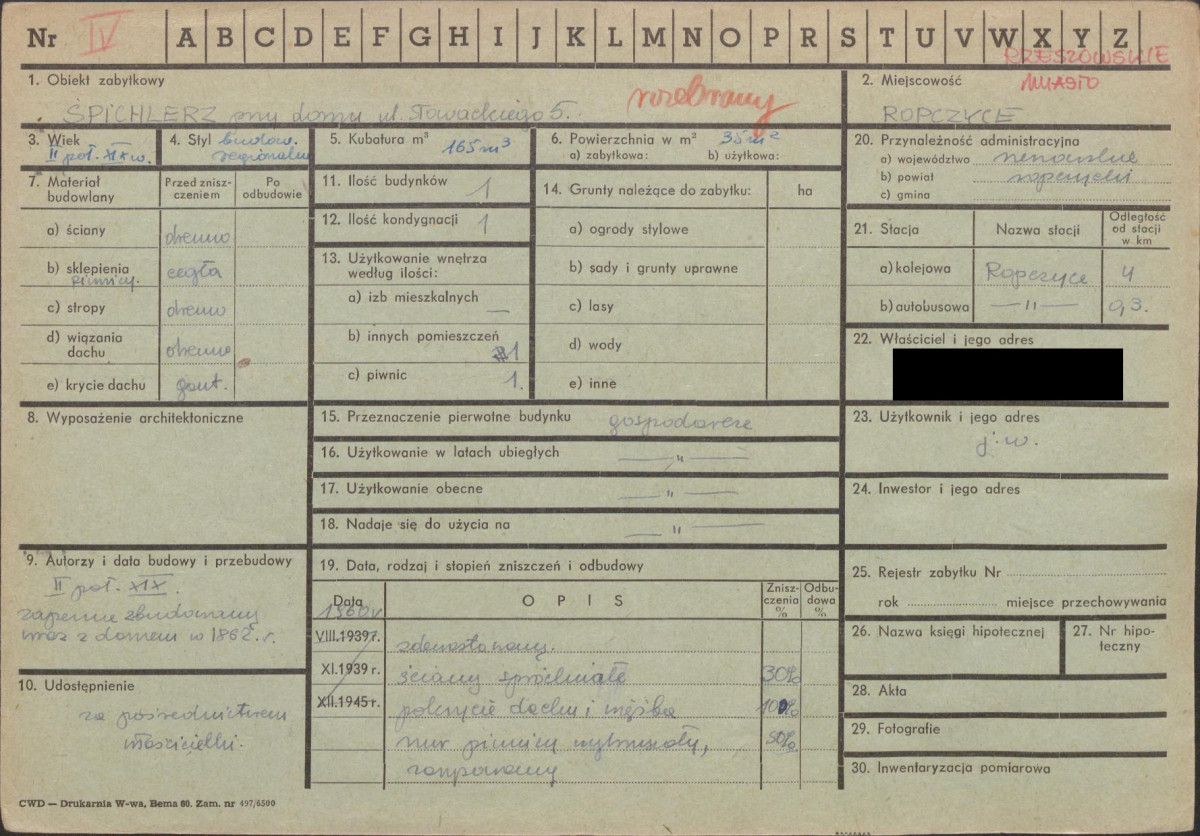 Nr IV A B C D E F G H I J K L M N O P R S T U V W X Y Z
RZESZOWSKIE
MIASTO
1. Obiekt zabytkowy
ŚPICHLERZ przy domu ul. Słowackiego 5.
rozebrany
2. Miejscowość
ROPCZYCE
3. Wiek
II poł. XIX w.
4. Styl budow.
regionalne
5. Kubatura m³
165 m³
6. Powierzchnia w m² 35 m²
a) zabytkowa: b) użytkowa:
20. Przynależność administracyjna
a) województwo rzeszowskie
b) powiat ropczycki
c) gmina
7. Materiał budowlany
Przed zniszczeniem
Po odbudowie
a) ściany drewno
b) sklepienia piwnicy. cegła
c) stropy drewno
d) wiązania dachu drewno
e) krycie dachu gont.
11. Ilość budynków 1
12. Ilość kondygnacji 1
13. Użytkowanie wnętrza
według ilości:
a) izb mieszkalnych —
b) innych pomieszczeń 1
c) piwnic 1.
14. Grunty należące do zabytku: ha
a) ogrody stylowe
b) sady i grunty uprawne
c) lasy
d) wody
e) inne
21. Stacja Nazwa stacji Odległość od stacji w km
a) kolejowa Ropczyce 4
b) autobusowa —"— 0,3.
22. Właściciel i jego adres
8. Wyposażenie architektoniczne
15. Przeznaczenie pierwotne budynku gospodarcze
16. Użytkowanie w latach ubiegłych —"—
17. Użytkowanie obecne —"—
18. Nadaje się do użycia na —"—
23. Użytkownik i jego adres
j.w.
24. Inwestor i jego adres
9. Autorzy i data budowy i przebudowy
II poł. XIX.
zapewne zbudowany
wraz z domem w 1862 r.
10. Udostępnienie
za pośrednictwem
właścicielki.
19. Data, rodzaj i stopień zniszczeń i odbudowy
Data OPIS Zniszczenia % Odbudowa %
1960 r
VIII.1939 r. zdewastowany.
XI.1939 r. ściany spróchniałe 30%
XII.1945 r. pokrycie dachu i więźba 100%
mur piwnicy wybrzuszony, 50%
zarysowany
25. Rejestr zabytku Nr
rok miejsce przechowywania
26. Nazwa księgi hipotecznej
27. Nr hipoteczny
28. Akta
29. Fotografie
30. Inwentaryzacja pomiarowa
CWD — Drukarnia W-wa, Bema 60. Zam. nr 497/6500